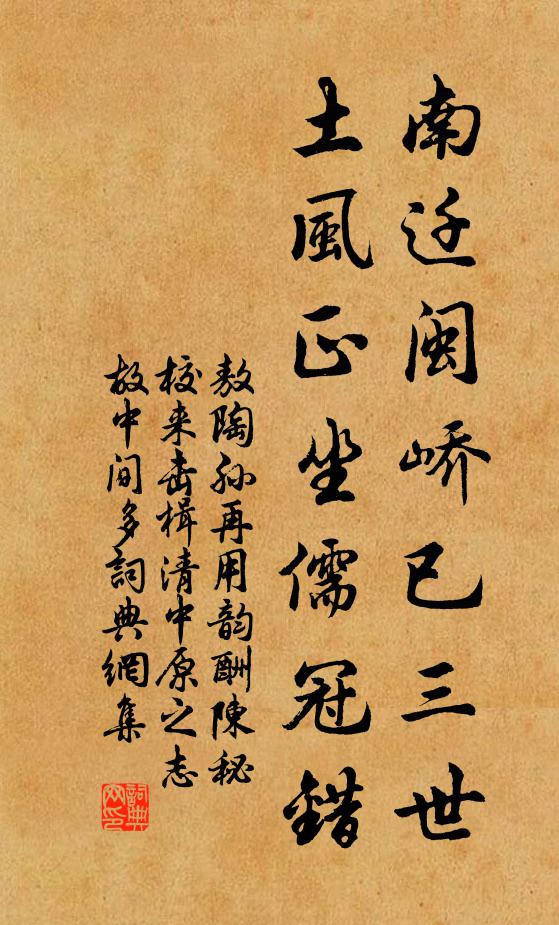 南迁闽峤已三世
土風正坐儒冠錯
敖陶孙再用韵酬陳秘
校来击楫清中原之志
故中间多詞典網集
詞典網印